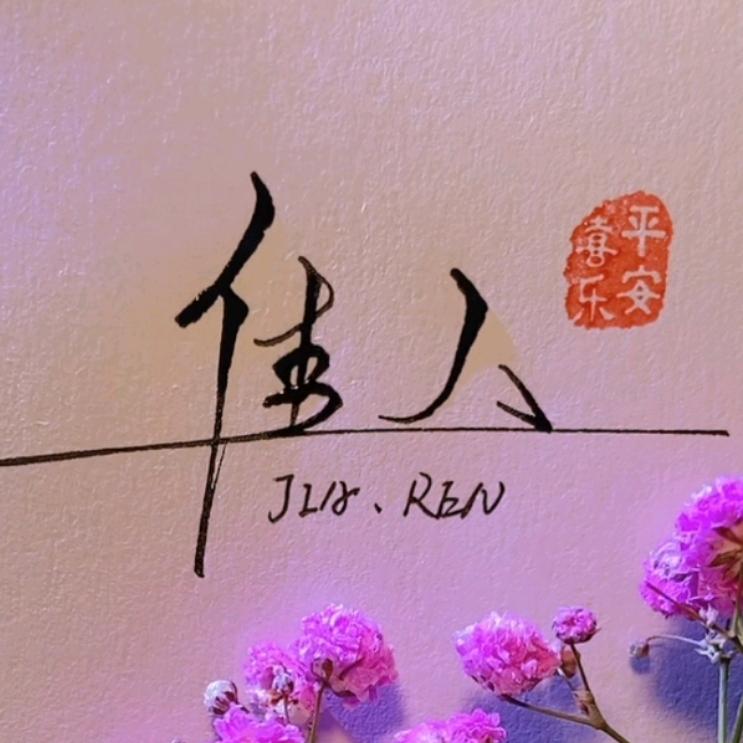 佳人
JIA.REN
平安
喜乐